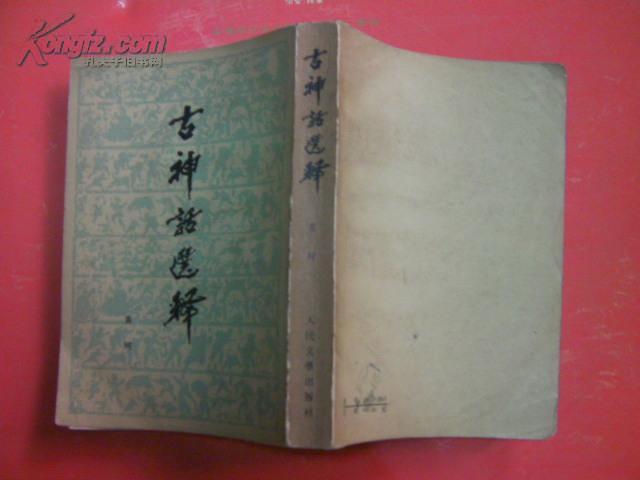 Kongfz.com
孔夫子旧书网
古神話選釋
袁珂
古神話選釋
袁珂
人民文學出版社